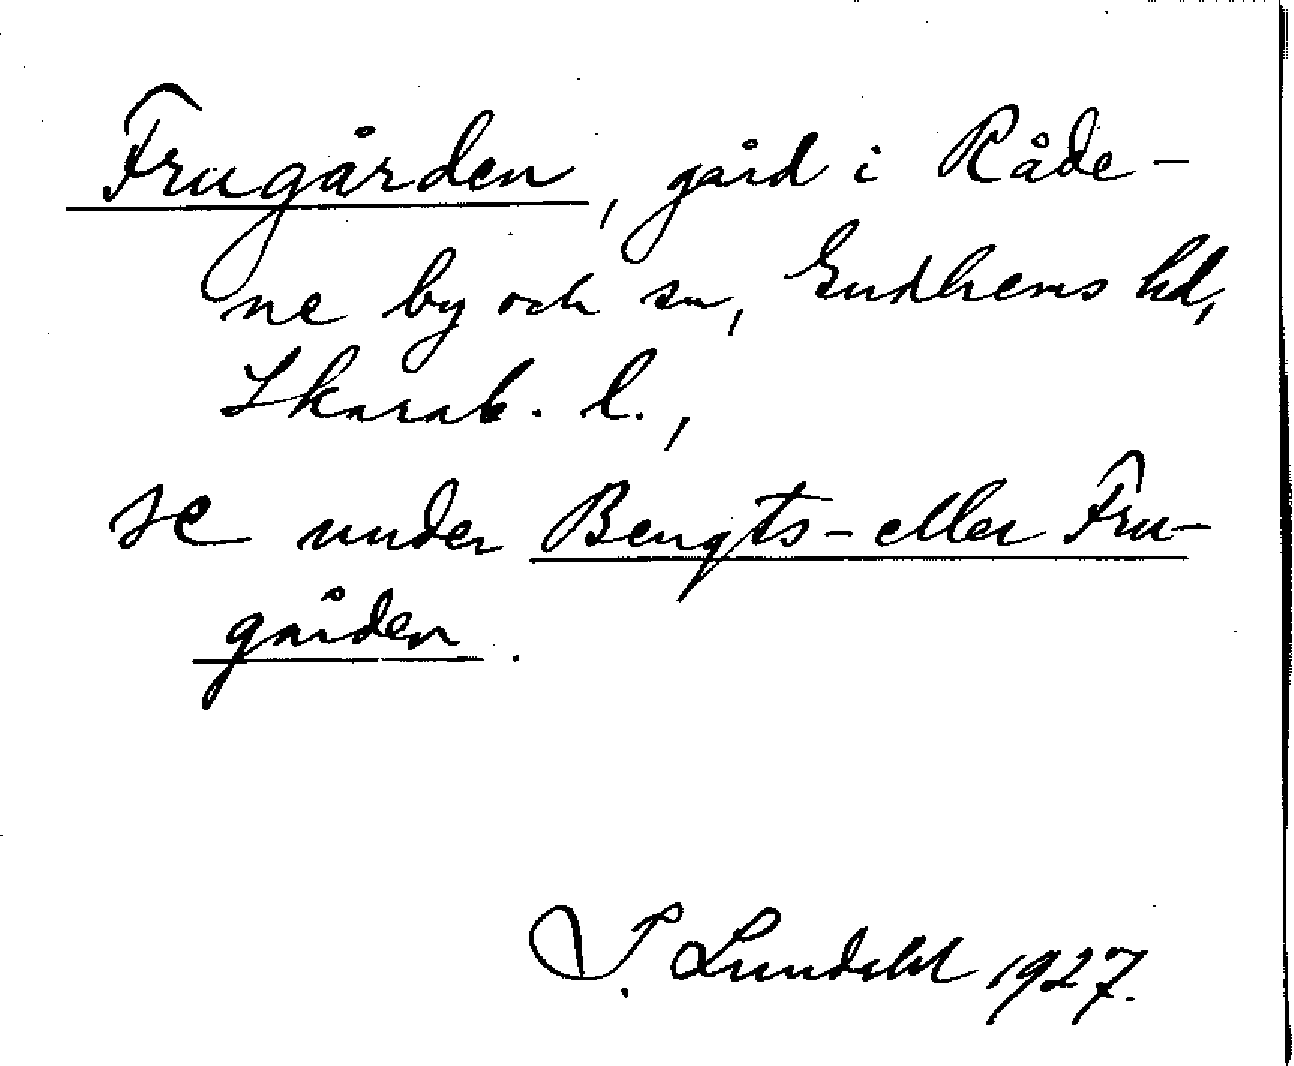 Frugården, gård i Råde-
ne by och sn, Gudhems hd,
Skarab. l.,
se under Bengts- eller Fru-
gården.
Lundahl 1927.